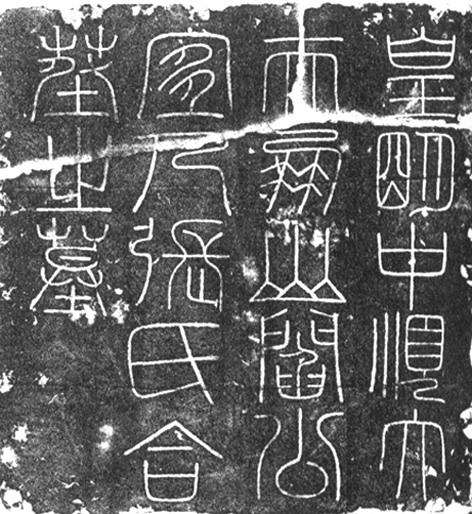 皇明中順大
夫山閻公
宜人張氏合
葬之墓